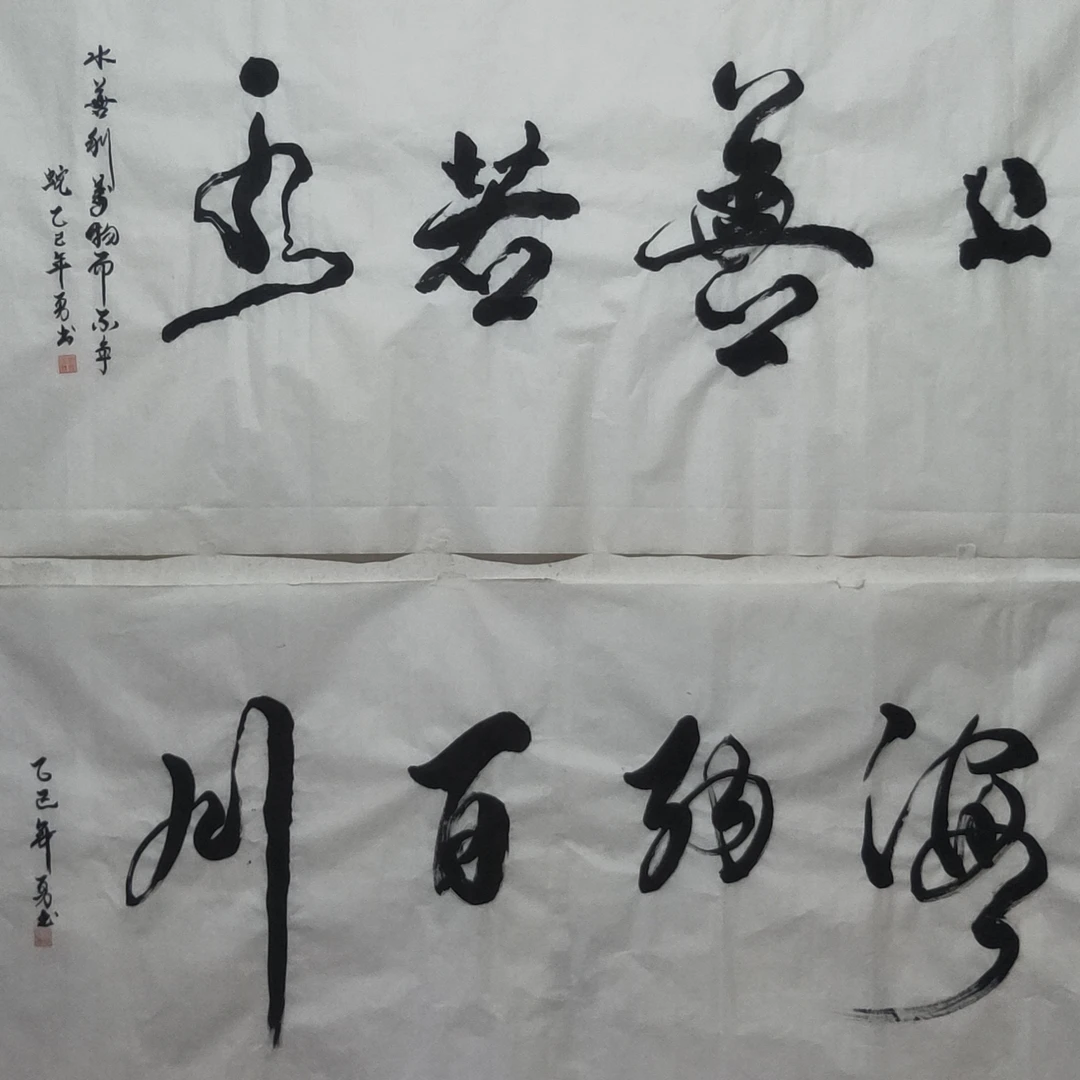 上善若水
水善利萬物而不争
蛇乙巳年勇书
海纳百川
乙巳年勇书